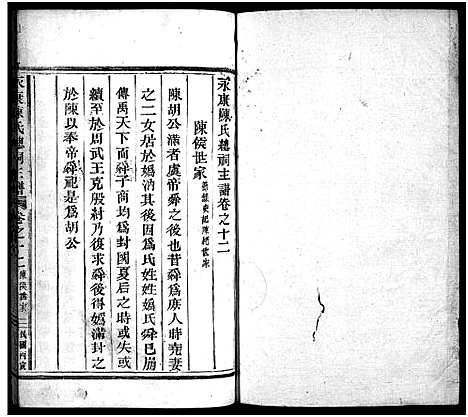 永康陳氏總祠主譜卷之十二
陳侯世家
陳胡公滿者虞帝舜之後也昔舜為庶人時堯妻
之二女居於媯汭其後因為氏姓姓媯氏舜已崩
傳禹天下而舜子商均為封國夏后之時或失或
續至於周武王克殷紂乃復求舜後得媯滿封之
於陳以奉帝舜祀是為胡公
永康陳氏總祠主譜 卷之十二 陳侯世家 一 民國丙寅